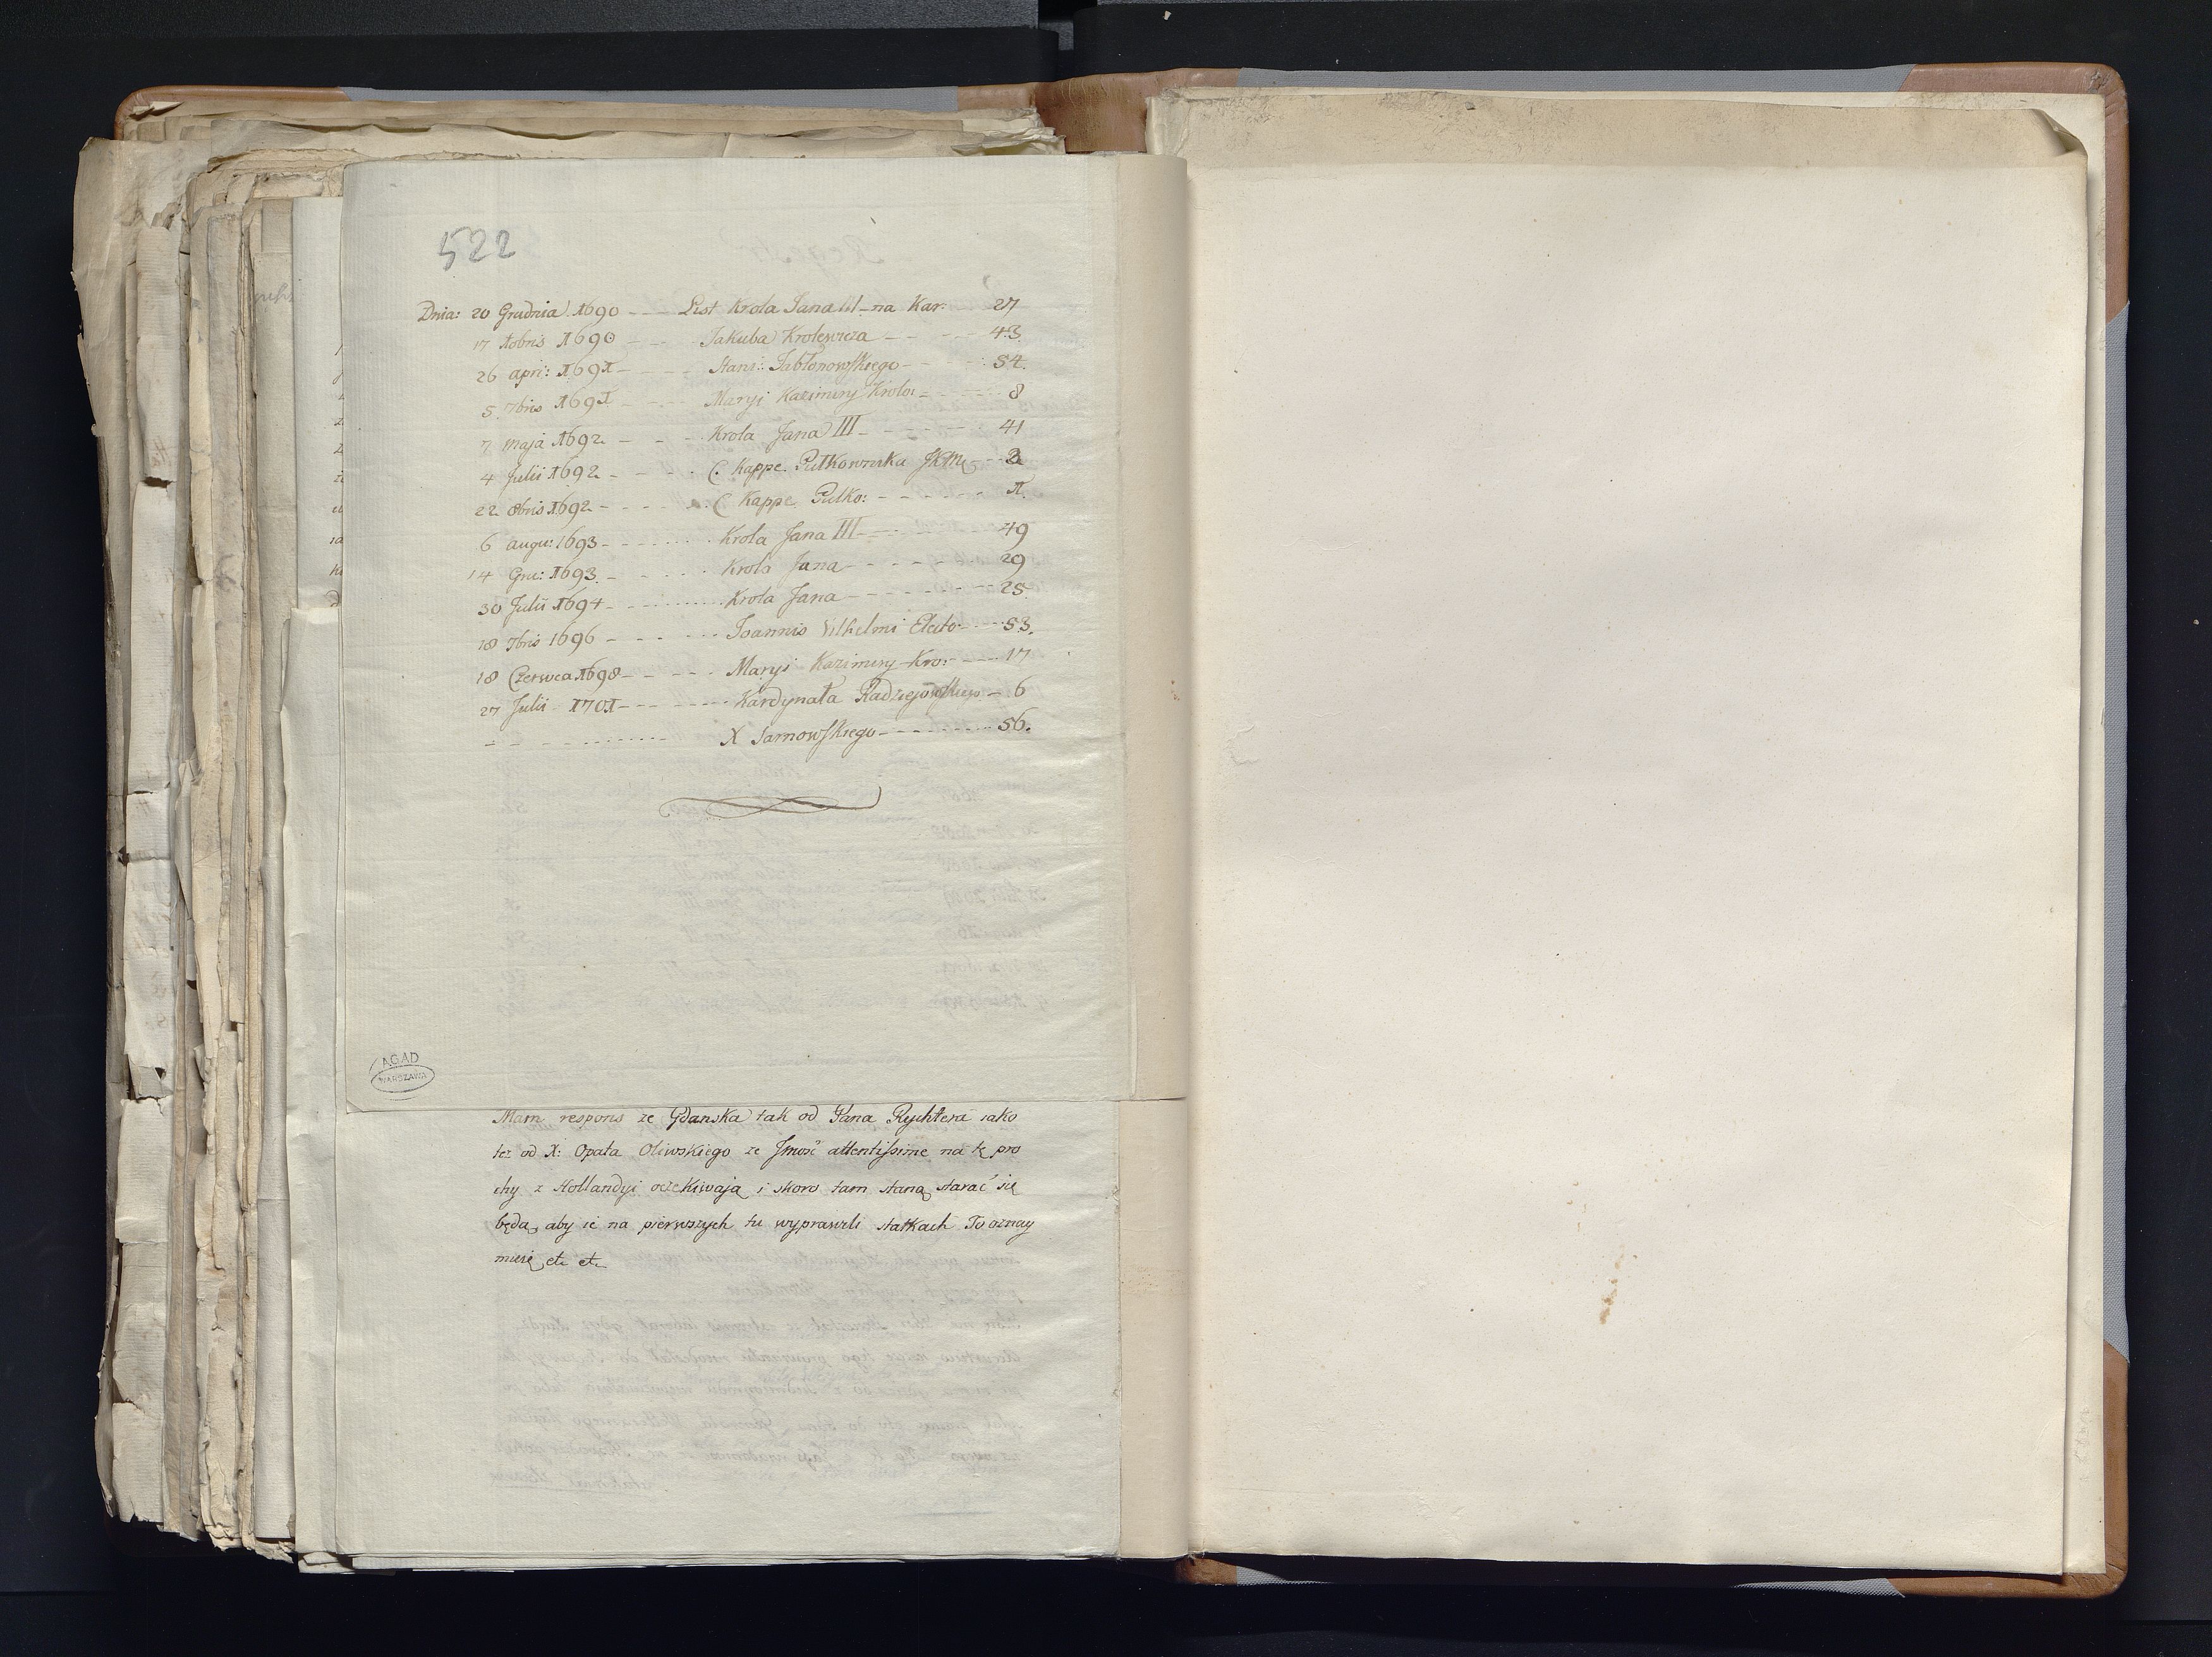 522
Dnia: 20 Grudnia 1690 - - - List Krola Jana III - na Kar: 27
17 Xobris 1690 - - - Jakuba Krolewicza - - - 43
26 apri: 1691 - - - Stani: Jabłonowskiego - - - 54.
5. 7bris 1691 - - - Maryi Kazimiry Krolo: - - - 8
7 maja 1692 - - - Krola Jana III - - - 41
4 Julii 1692 - - - C. Kappe. Pułkownika JKMę - -
22 8bris 1692 - - - C Kappe Pułko: - - - 1.
6 augu: 1693 - - - Krola Jana III - - - 49
14 Gru: 1693. - - - Krola Jana - - - 29
30 Julii 1694 - - - Krola Jana - - - 25
18 7bris 1696 - - - Joannis Vilhelmi Electo - - - 53.
18 Czerwca 1698 - - - Maryi Kazimiry Kro: - - - 17
27 Julii 1701 - - - Kardynała Radziejowskiego - 6
- - - X Sarnowskiego - - - 56.
AGAD
WARSZAWA
Mam respons ze Gdanska tak od Pana Rychtera iako
też od X: Opata Oliwskiego że Jmość attentissime na tę pro
chy z Hollandyi oczekiwaią i skoro tam staną starać się
będą, aby ie na pierwszych tu wyprawili statkach To oznay
miwszę etc etc